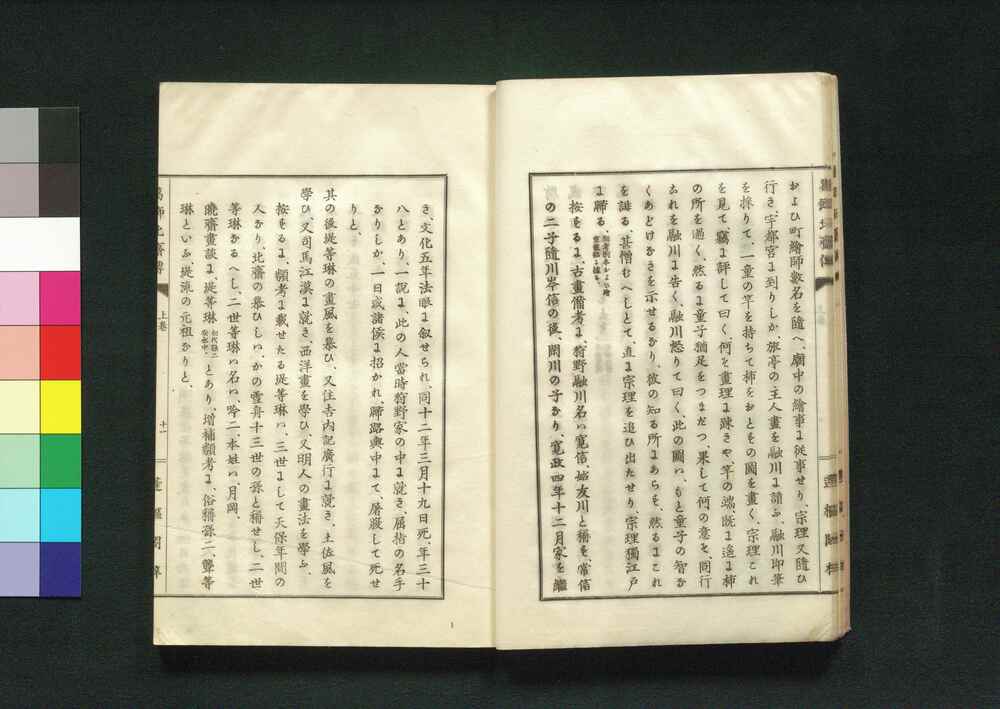 および町繪師數名を隨へ、廟中の繪事に從事せり、宗理又隨ひ
行き、宇都宮に到りしが、旅亭の主人畫を融川に請ふ、融川即筆
を採りて一童の竿を持ちて柿をおとすの圖を畫く、宗理これ
を見て、竊に評して曰く、何ぞ畫理に疎きや、竿の端、既に遙に柿
の所を過ぐ、然るに童子猶足をつまだつ、果して何の意ぞ、同行
これを融川に告く、融川怒りて曰く、此の圖ハ、もと童子の智な
くあどけなきを示せるなり、彼の知る所にあらず、然るにこれ
を誹る、甚憎むへしとて、直に宗理を追ひ出たせり、宗理獨江戸
に歸る、
按ずるに、古畫備考に、狩野融川名ハ寛信、始友川と稱す、常信
の二子隨川岑信の後、閑川の子なり、寛政四年十二月家を繼
き、文化五年法眼に叙せられ、同十二年三月十九日死、年三十
八とあり、一説に、此の人當時狩野家の中に就き、屈指の名手
なりしが、一日或諸侯に招かれ、歸路輿中にて、屠腹して死せ
りと、
其の後堤等琳の畫風を慕ひ、又住吉内記廣行に就き、土佐風を
學ひ、又司馬江漢に就き、西洋畫を學ひ、又明人の畫法を學ふ、
按ずるに、類考に載せたる堤等琳ハ、三世にして天保年間の
人なり、北齋の慕ひしハ、かの雪舟十三世の孫と稱せし、二世
等琳なるへし、二世等琳ハ名ハ、吟二、本姓ハ、月岡、
曉齋畫談に、堤等琳 とあり、增補類考に、俗稱孫二、聾等
琳といふ、堤流の元祖なりと、
葛飾北齋傳
上卷
十一
蓬樞閣梓